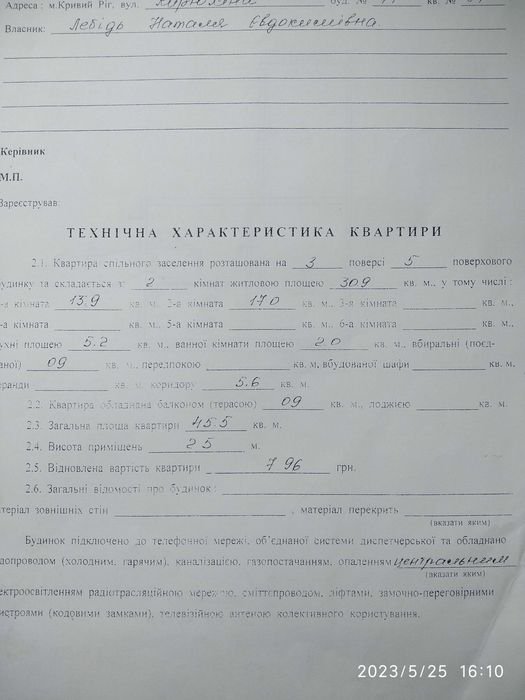 Адреса : м.Кривий Ріг, вул. буд. № кв. №
Власник: Лебідь Наталя Євдокимівна.
Керівник
М.П.
Зареєстрував:
ТЕХНІЧНА ХАРАКТЕРИСТИКА КВАРТИРИ
2.1. Квартира спільного заселення розташована на 3 поверсі 5 поверхового
будинку та складається з 2 кімнат житловою площею 30,9 кв. м., у тому числі :
-а кімната 13,9 кв. м., 2-а кімната 17,0 кв. м., 3-я кімната кв. м.,
-а кімната кв. м., 5-а кімната кв. м., 6-а кімната кв. м.,
ухні площею 5.2 кв. м., ванної кімнати площею 2.0 кв. м., вбиральні (поєд-
аної) 0,9 кв. м., передпокою кв. м, вбудованої шафи кв. м.
ранди кв. м. коридору 5.6 кв. м.
2.2. Квартира обладнана балконом (терасою) 0,9 кв. м., лоджією кв. м.
2.3. Загальна площа квартири 45.5 кв. м.
2.4. Висота приміщень 2.5 м.
2.5. Відновлена вартість квартири 796 грн.
2.6. Загальні відомості про будинок :
теріал зовнішніх стін , матеріал перекрить
(вказати яким)
Будинок підключено до телефонної мережі, об'єднаної системи диспетчерської та обладнано
допроводом (холодним, гарячим), каналізацією, газопостачанням, опаленням центральним
(вказати яким)
ектроосвітленням радіотрасляційною мережою, сміттєпроводом, ліфтами, замочно-переговірними
истроями (кодовими замками), телевізійною антеною колективного користування.
2023/5/25 16:10